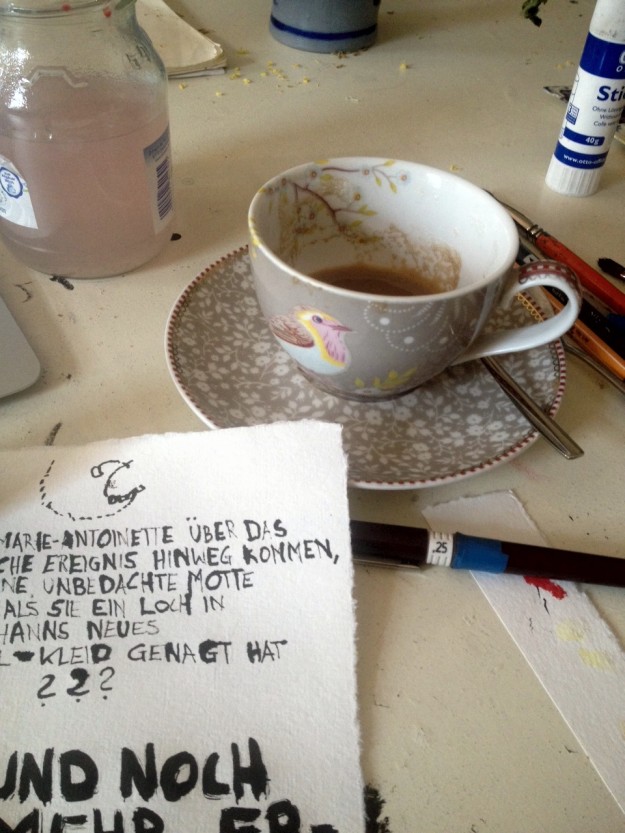 Sti
Ohne Lö
Colle sans
40g
www.otto-offi
MARIE-ANTOINETTE ÜBER DAS
CHE EREIGNIS HINWEG KOMMEN,
NE UNBEDACHTE MOTTE
ALS SIE EIN LOCH IN
HANNS NEUES
L-KLEID GENAGT HAT
???
UND NOCH
MEHR ER-
.25